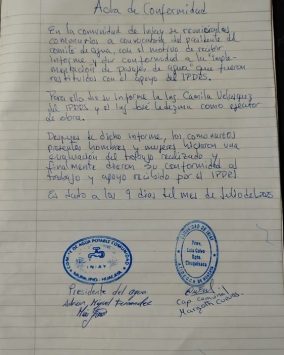 Acta de Conformidad
En la comunidad de Iñay se reunieron los
comunarios a convocatoria del presidente del
comité de agua, con el motivo de recibir
informe y dar conformidad a la "imple-
mentación de cosecha de agua" que fueron
restituidos con el apoyo de IPDES.
Para ello dio su informe la Ing. Camila Velasquez
del IPDES y el Ing. José Ledezma como ejecutor
de obra.
Despues de dicho informe, los comunarios
presentes hombres y mujeres hicieron una
evaluación del trabajo realizado y
finalmente dieron su conformidad al
trabajo y apoyo recibido por el IPDES
Es dado a los 9 dias del mes de Julio del 2025
COMITE DE AGUA POTABLE Y
IÑAY
MUNICIPIO
Prov.
Luis Calvo
Dpto.
Chuquisaca
Presidente del agua
Adrian Miguel Fernandez
Cap. Comunal
Margoth Cuevas